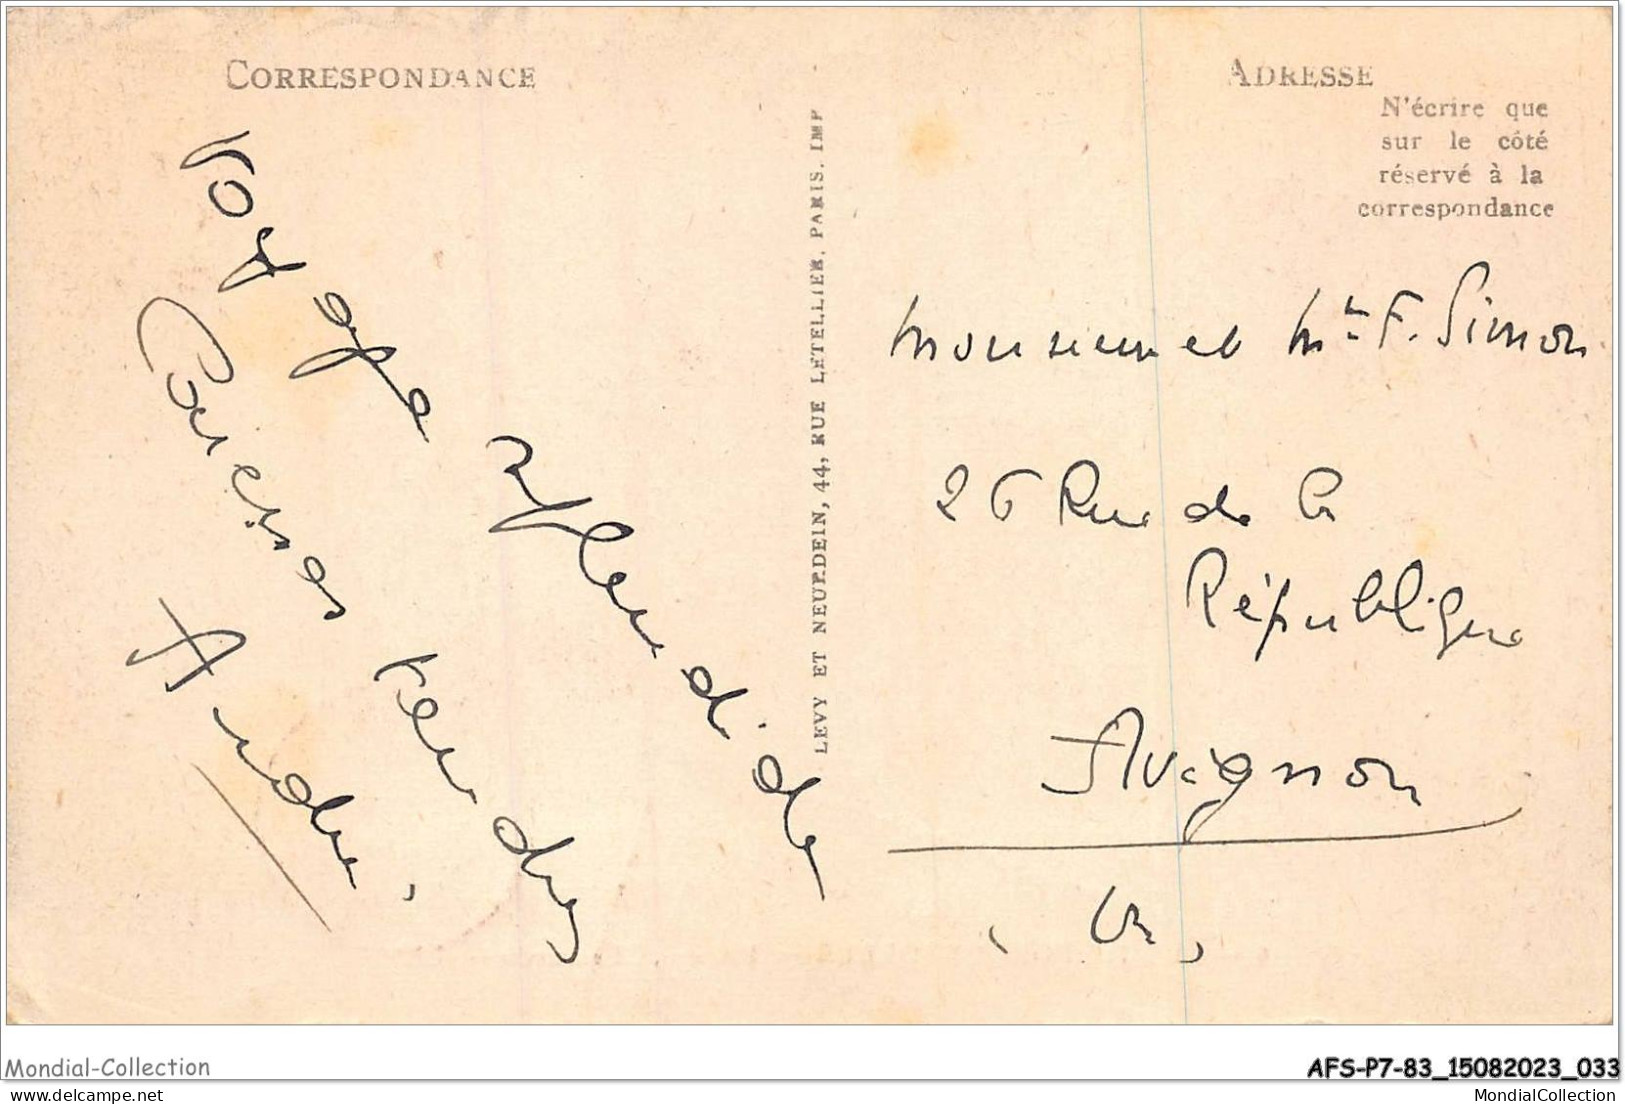 CORRESPONDANCE
Voyage splendide
Caresses tendres
Andrée.
LEVY ET NEURDEIN, 44, RUE LETELLIER, PARIS. IMP
ADRESSE
N'écrire que
sur le côté
réservé à la
correspondance
Monsieur et Mme F. Simon
26 Rue de la
République
Avignon
Mondial-Collection
AFS-P7-83_15082023_033
mondial-collection
MondialCollection